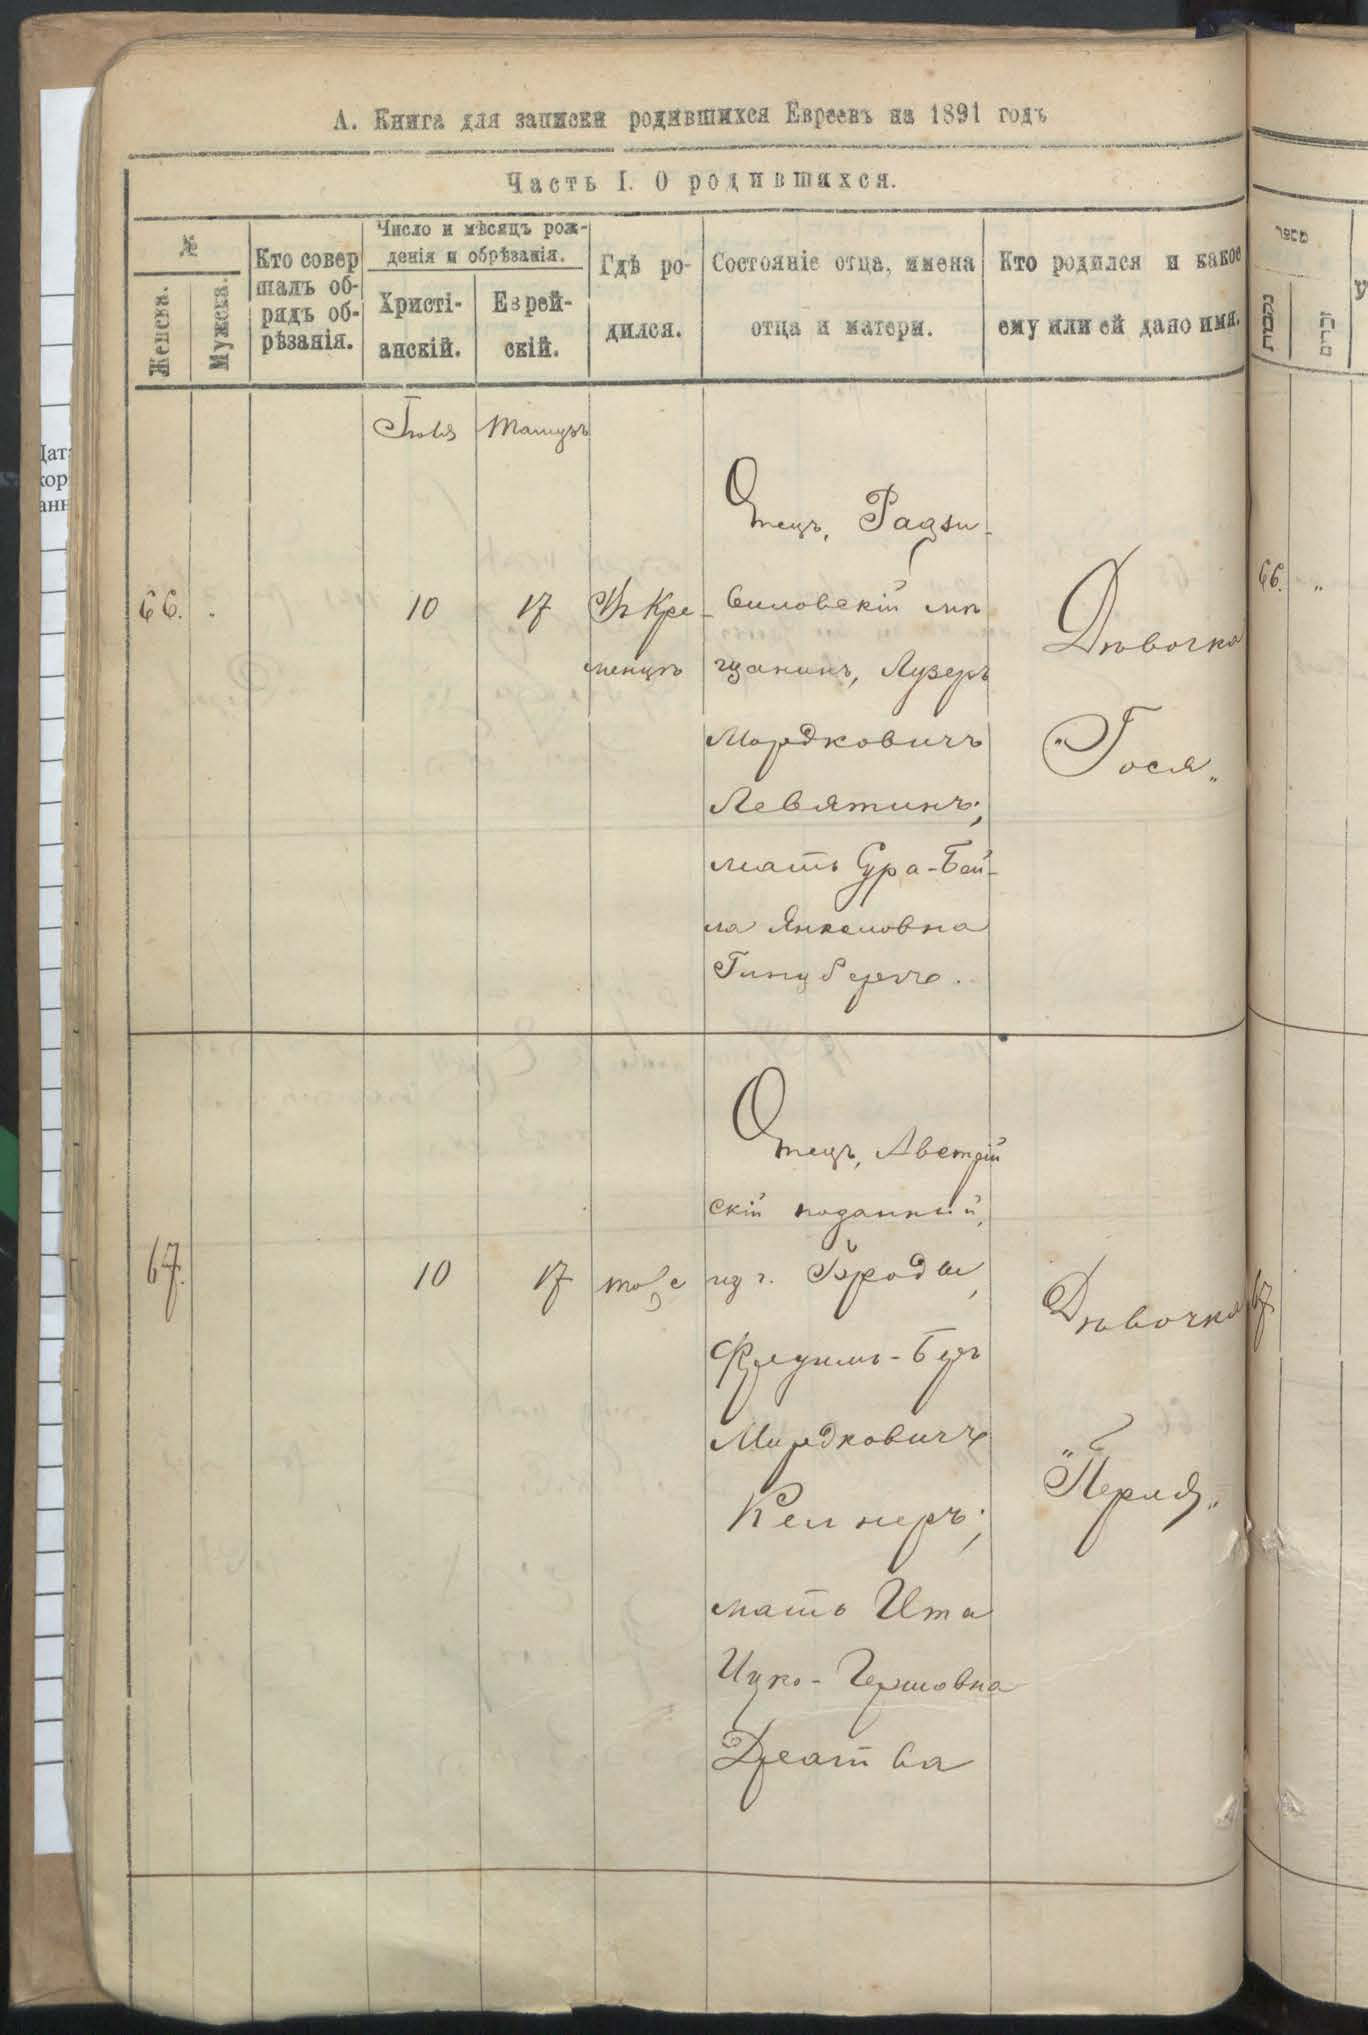 А. Книга для записки родившихся Евреевъ на 1891 годъ
Часть I. О родившихся.
№
Женска.
Мужска.
Кто совер
шалъ об-
рядъ об-
рѣзанія.
Число и мѣсяцъ рож-
денія и обрѣзанія.
Христі-
анскій.
Еврей-
скій.
Гдѣ ро-
дился.
Состояніе отца, имена
отца и матери.
Кто родился и какое
ему или ей дано имя.
מספר
נקבות
זכרים
Іюля
Тамузъ
66.
10
17
Въ Кре-
менцѣ
Отецъ, Радзи-
виловскій мѣ
щанинъ, Лузеръ
Мордковичъ
Левятинъ;
мать Сура-Бей-
ла Янкеловна
Гинцбергъ.
Дѣвочка
"Гося"
66. "
67.
10
17
тоже
Отецъ, Австрій
скій поданный,
из г. Броды,
Мордковичъ
Келнеръ;
мать Ита
Ицко-Гершовна
Дѣвочка
"Перля"
67
Дата
кор
анн